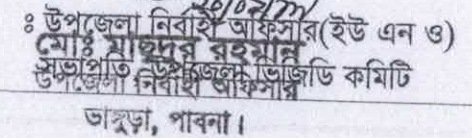 ঃ উপজেলা নির্বাহী অফিসার(ইউ এন ও)
মোঃ মাছুদুর রহমান
সভাপতি উপজেলা ভিজিডি কমিটি
উপজেলা নির্বাহী অফিসার
ভাঙ্গুড়া, পাবনা।